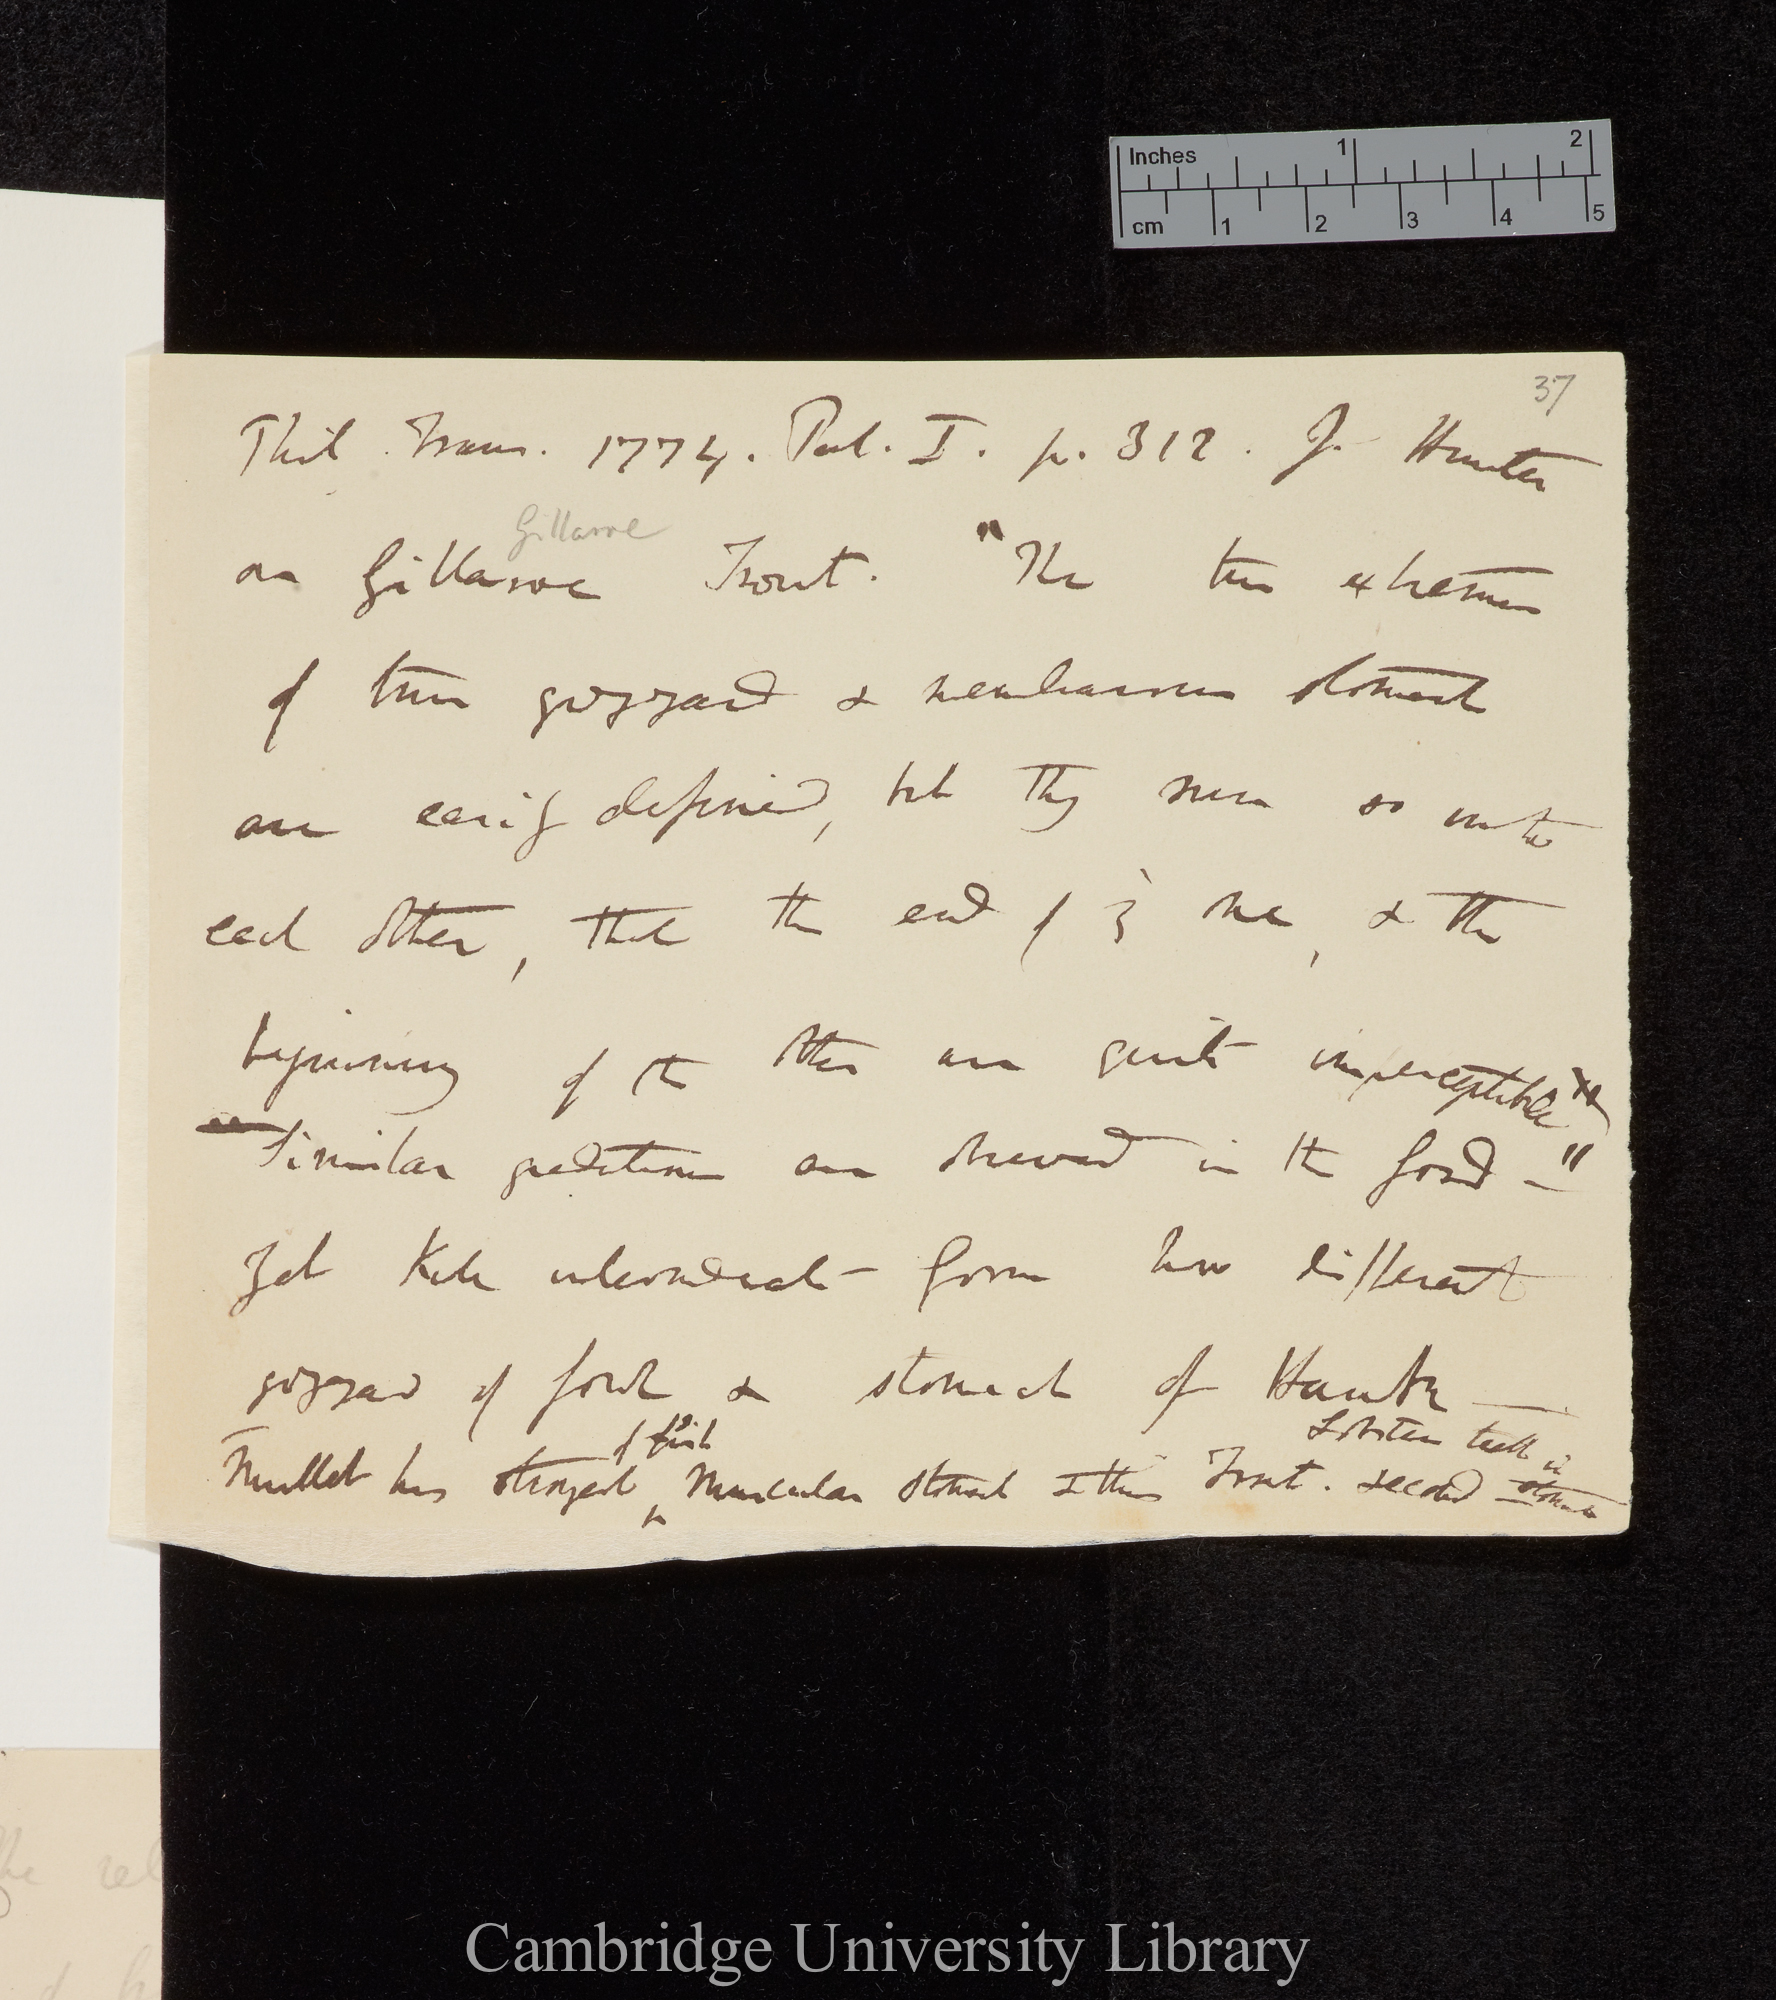 Inches 1 2
cm 1 2 3 4 5
37
Phil. Trans. 1774. Part. I. p. 312. J. Hunter
Gillaroe
on Gillaroe Trout. "The two extremes
of true gizzard & membranous stomach
are easily defined, but they run so into
each other, that the end of one, & the
beginning of the other are quite imperceptible
Similar gradations are observed in the food —"
Yet intermediate form how different
gizzard of fowl & stomach of Hawk —
of fish
Lobster teeth in
Mullet has strongest ^ Muscular stomach & then Trout. second stomach
Cambridge University Library